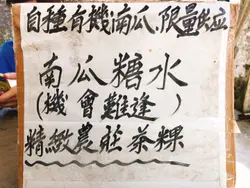 自種有機南瓜.限量供应
南瓜糖水
(機會難逢)
精緻農莊茶粿